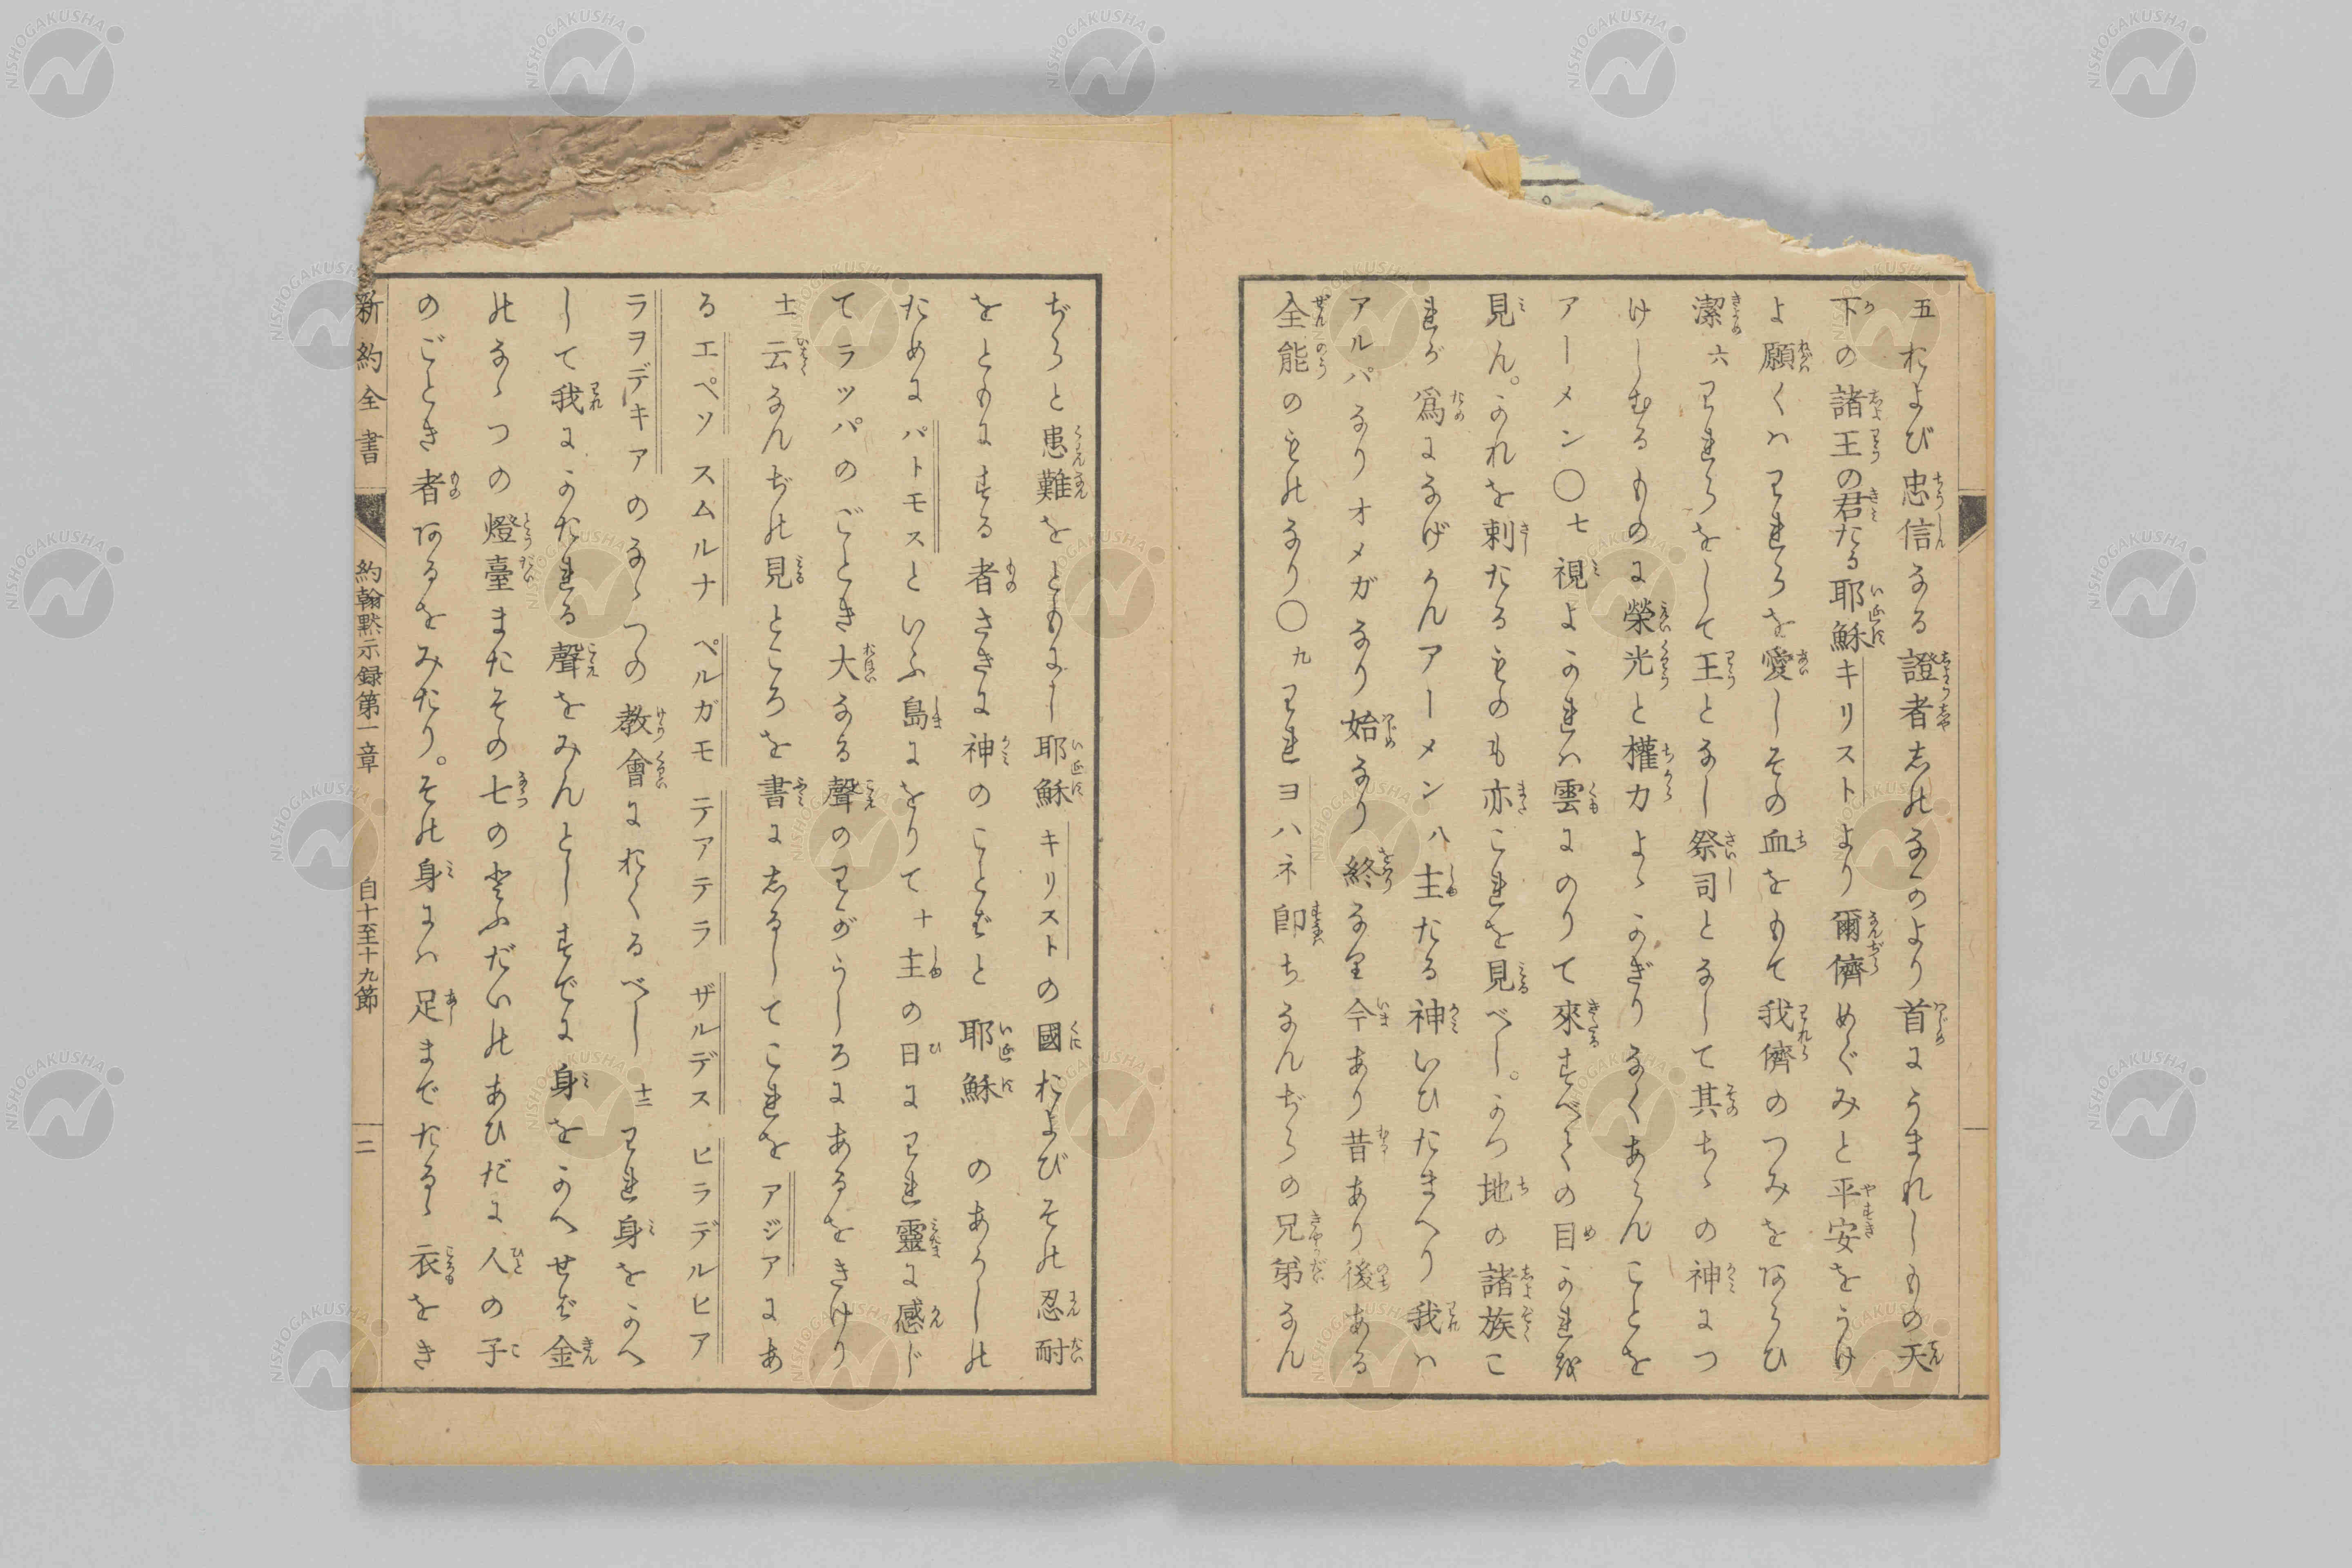 五 および忠信なる證者志のなかのより首にうまれしもの天
下の諸王の君たる耶穌キリストより爾儕めぐみと平安をうけ
よ願くハわれらを愛しその血をもて我儕のつみをあらひ
潔 六 われらをして王となし祭司となして其ちゝの神につ
かしむるものに榮光と權力よゝかぎりなくあらんことを
アーメン〇 七 視よかれハ雲にのりて來すべての目かれを
見ん。かれを刺たるものも亦これを見べし。かつ地の諸族こ
れが爲になげかんアーメン 八 主たる神いひたまへり我ハ
アルパなりオメガなり始なり終なり今あり昔あり後ある
全能のものなり〇 九 われヨハネ即ちなんぢらの兄弟なん
ぢらと患難をともにし耶穌キリストの國およびその忍耐
をともにする者さきに神のことばと耶穌のあかしの
ためにパトモスといふ島にをりて 十 主の日にわれ靈に感じ
てラッパのごとき大なる聲のわがうしろにあるをきけり
十一 云なんぢの見ところを書に志るしてこれをアジアにあ
るエペソ スムルナ ペルガモ テアテラ ザルデス ヒラデルヒア
ラヲデキアのなゝつの教會におくるべし 十二 われ身をかへ
して我にかたれる聲をみんとしすでに身をかへせば金
のなゝつの燈臺またその七のとふだいのあひだに人の子
のごとき者あるをみたり。その身にハ足までたるゝ衣をき
新約全書 約翰黙示録第一章 自十至十九節 二
NISHOGAKUSHA